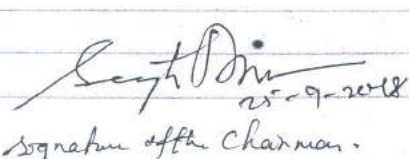 25-9-2018
Signature of the Chairman.